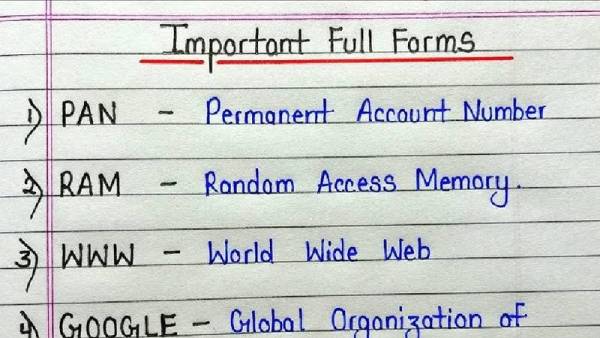 Important Full Forms
1) PAN - Permanent Account Number
2) RAM - Random Access Memory.
3) WWW - World Wide Web
4) GOOGLE - Global Organization of